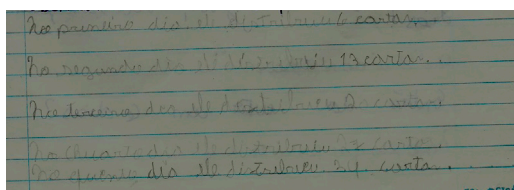 No primeiro dia ele distribuiu 6 cartas.
No segundo dia ele distribuiu 13 cartas.
No terceiro dia ele distribuiu cartas
No Quarto dia ele distribuiu 27 carta.
No quinto dia ele distribuiu 34 carta.